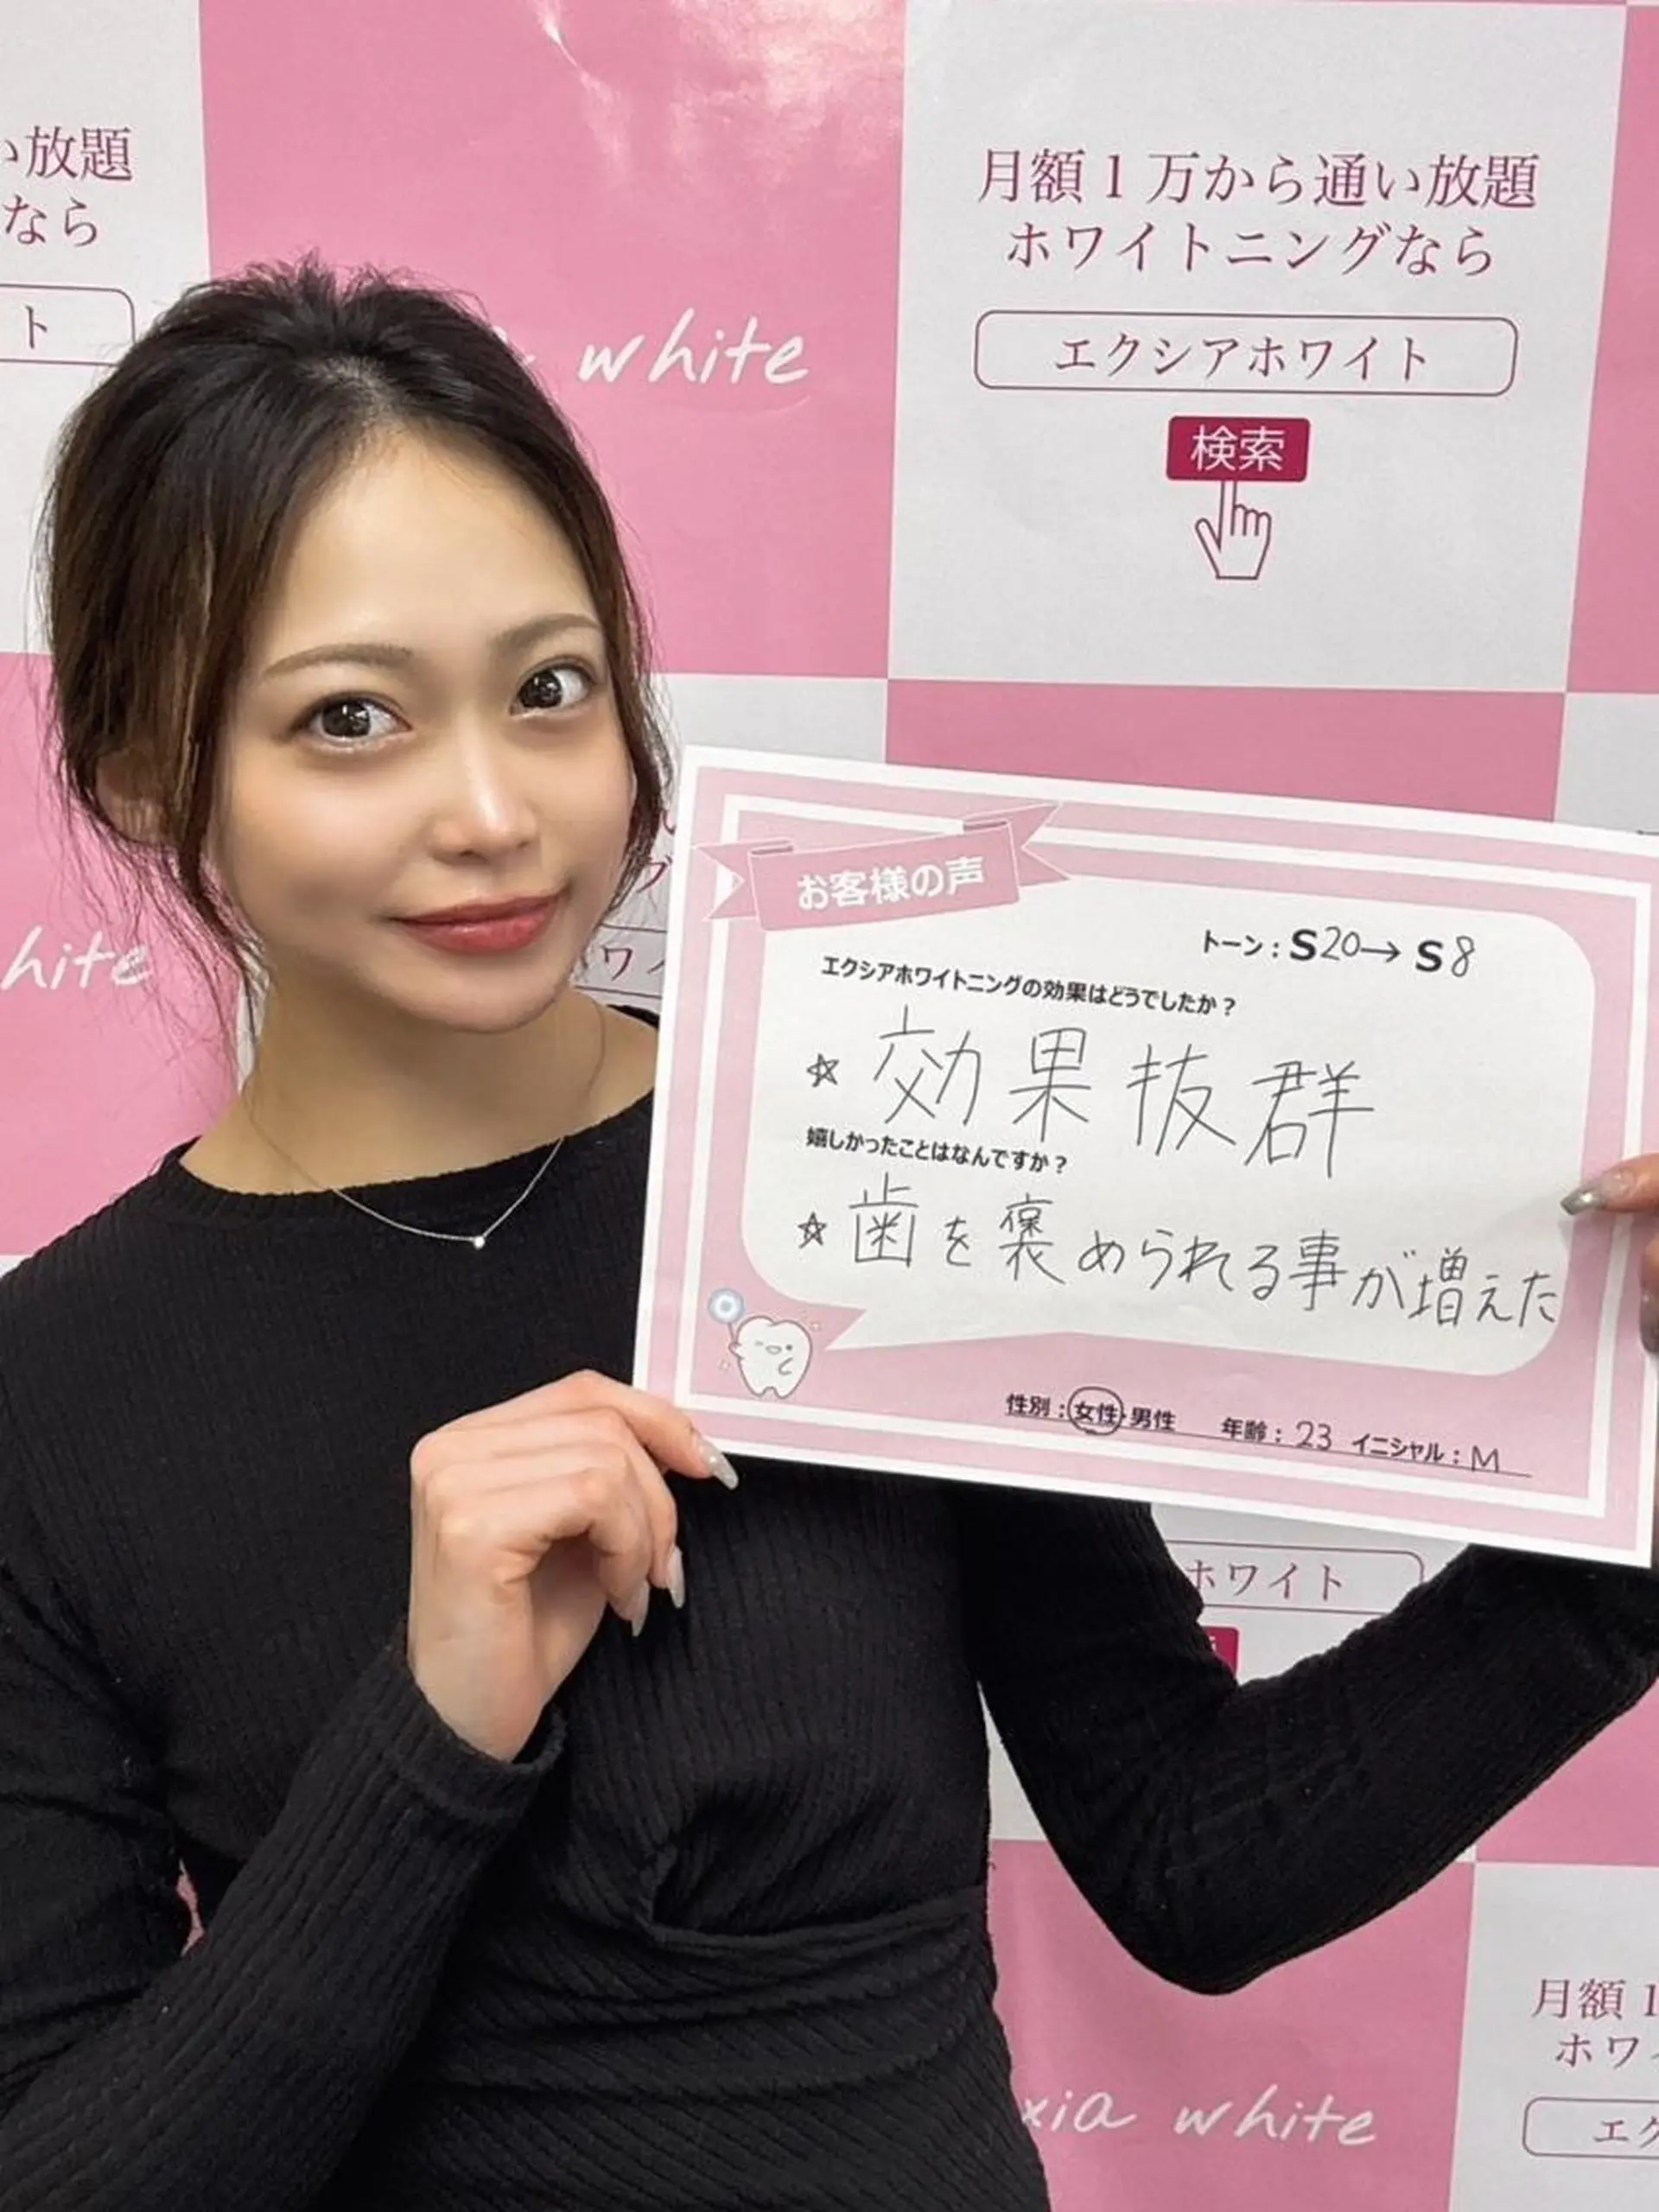 い放題
なら
ト
white
月額1万から通い放題
ホワイトニングなら
エクシアホワイト
検索
hite
お客様の声
トーン:S20→S8
エクシアホワイトニングの効果はどうでしたか?
☆ 効果抜群
嬉しかったことはなんですか?
☆ 歯を褒められる事が増えた
性別:女性・男性 年齢:23 イニシャル:M
ホワイト
月額1
ホワイ
xia white
エク